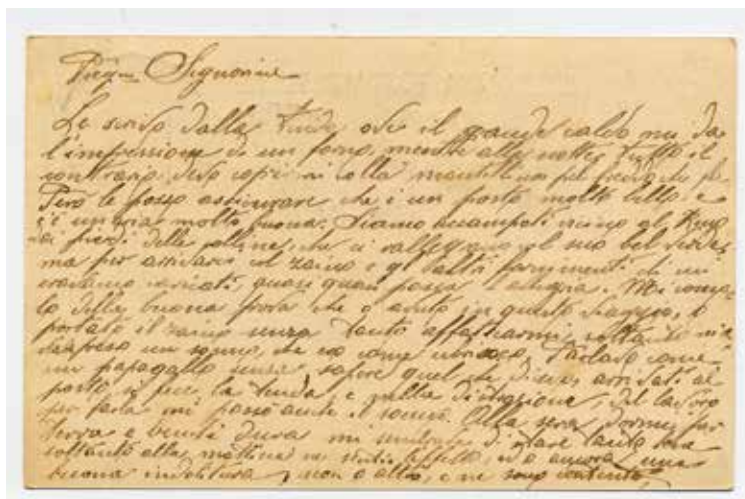 Signorine
Le scrivo dalla tenda ove il grande caldo mi da
l'impressione di un forno, mentre alla notte tutto il
contrario, devo coprirmi colla mantellina pel freddo che fa.
Però le posso assicurare che è un posto molto bello e
c'è un'aria molto buona. Siamo accampati vicino al
dei piedi delle colline, che ci rallegrano col suo bel verde,
ma per arrivarci col zaino e gli altri fornimenti di cui
eravamo caricati, quasi quasi passa l'allegria. Mi
lo della buona prova che o avuto in questo viaggio, o
portato il zaino senza tanto affaticarmi, soltanto mi
preso un sonno, che ero come ubriaco, Parlavo come
un papagallo senza sapere quel che dicevo, arrivati al
posto si fece la tenda e nella distrazione del lavoro
per farla mi passò anche il sonno. Alla sera, dormii per
terra e benchè dura mi sembrava
soltanto alla mattina ne sentii l'effetto, ed o ancora una
buona indolitura, non o altro, e ne sono contento,